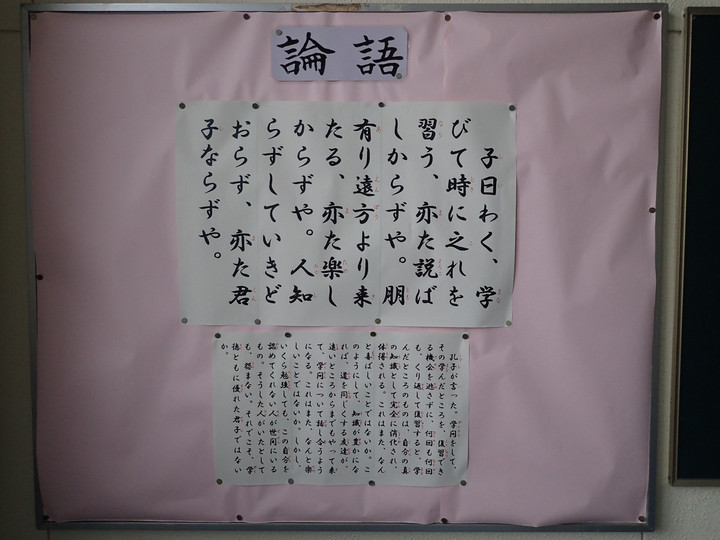 論語
子曰わく、学
びて時に之れを
習う、亦た説ば
しからずや。朋
有り遠方より来
たる、亦た楽し
からずや。人知
らずしていきど
おらず、亦た君
子ならずや。
孔子が言った。学問をして、
その学んだところを、復習でき
る機会を逃さずに、何回も何回
も、くり返して復習すると、学
んだところのものは、自分の真
の知識として完全に消化され、
体得される。これはまた、なん
と喜ばしいことではないか。こ
のようにして、知識が豊かにな
れば、道を同じくする友達が、
遠いところからまでもやって来
て、学問について話し合うよう
になる。これはまた、なんと楽
しいことではないか。しかし、
いくら勉強しても、この自分を
認めてくれない人が世間にいる
もの。そうした人がいたとして
も、怨まない。それでこそ、学
徳ともに優れた君子ではない
か。